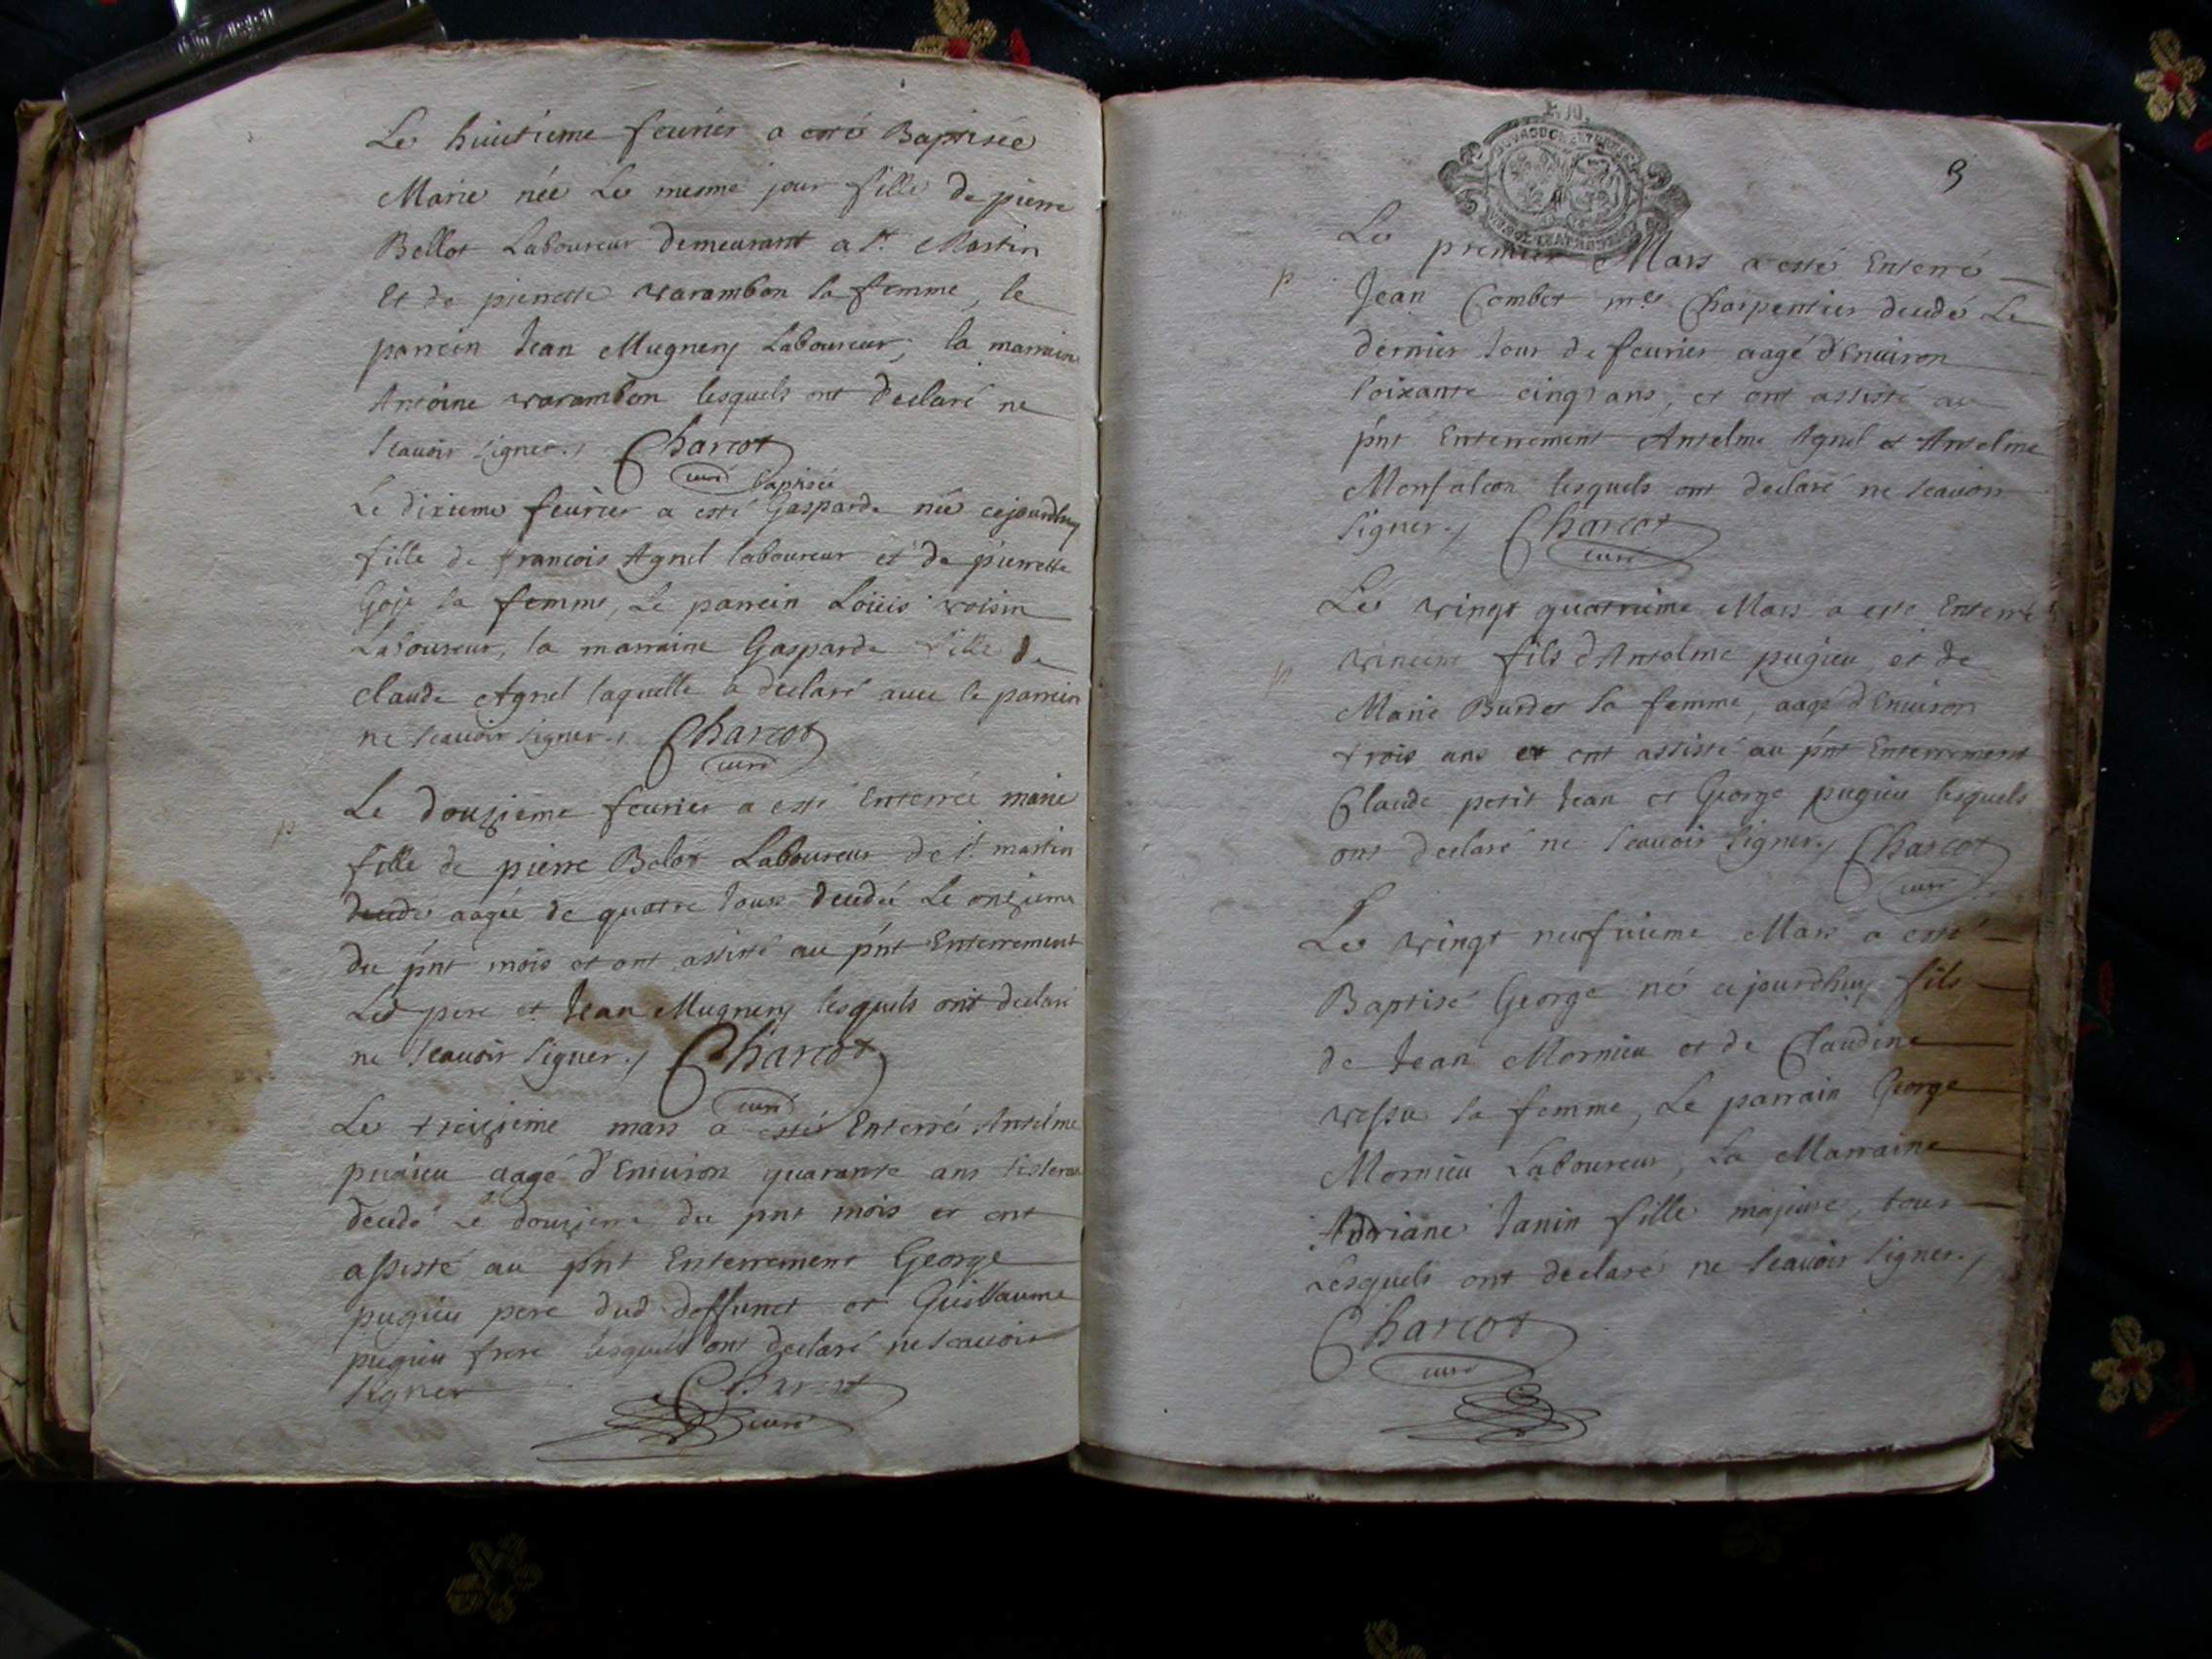 Le huictieme feurier a esté Baptisée
Marie née Le mesme jour fille de pierre
Bellot Laboureur demeurant a St Martin
Et de pierrette warambon sa femme, le
parrein Jean Mugnery Laboureur; la marraine
Antoine warambon lesquels ont declaré ne
scauoir signer./ Charcot
curé
baptisée
Le dixieme feurier a esté Gasparde née cejourdhuy
fille de francois Agnel laboureur et de pierrette
Goje sa femme, Le parrein Loüis voisin
Laboureur, la marraine Gasparde fille de
claude Agnel laquelle a declaré auec le parrein
ne scauoir signer./ Charcot
curé
Le douzieme feurier a esté Enterrée marie
p
fille de pierre Belot Laboureur de St martin
aagée de quatre Jours decedée Le onzieme
du pnt mois et ont assisté au pnt Enterrement
Le pere et Jean Mugnery lesquels ont declaré
ne scauoir signer./ Charcot
curé
Le treizieme mars a esté Enterré Antelme
pugieu aagé d'Enuiron quarante ans
decedé Le douzieme du pnt mois et ont
assisté au pnt Enterrement George
pugieu pere dud deffunct et Guillaume
pugieu frere lesquels ont declaré ne scauoir
signer Charcot
curé
9
Le premier Mars a esté Enterré
p
Jean Combet me Charpentier decedé Le
dernier Jour de feurier aagé d'Enuiron
soixante cinq ans, et ont assisté au
pnt Enterrement Antelme Agnel et Antelme
Monfalcon lesquels ont declaré ne scauoir
signer./ Charcot
curé
Le vingt quatrieme Mars a esté Enterré
p
vincent fils d'Antelme pugieu et de
Marie Burdet sa femme, aagé d'Enuiron
trois ans et ont assisté au pnt Enterrement
Claude petit Jean et George pugieu lesquels
ont declaré ne scauoir signer./ Charcot
curé
Le vingt neufuieme Mars a esté
Baptisé George né cejourdhuy fils
de Jean Mornieu et de Claudine
vessu sa femme, Le parrain George
Mornieu Laboureur, La Marraine
Adriane Janin fille majeure, tous
Lesquels ont declaré ne scauoir signer./
Charcot
curé